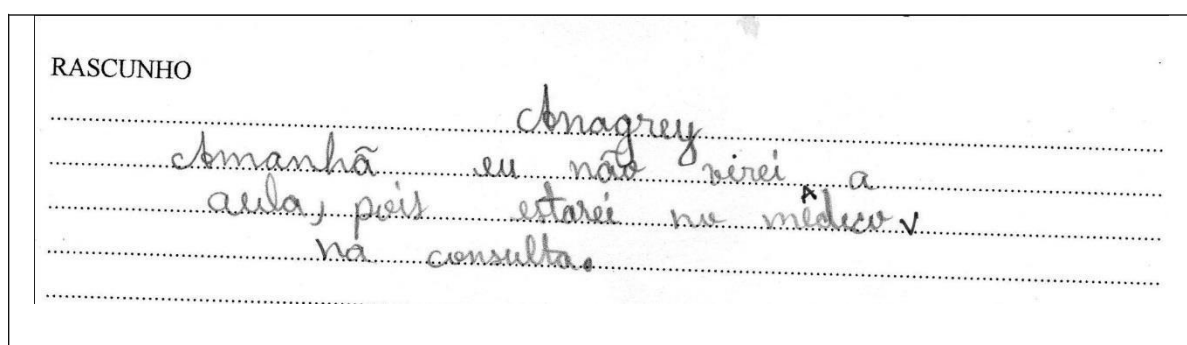 RASCUNHO
Anagrey
Amanhã eu não virei a
aula, pois estarei no médico
na consulta.